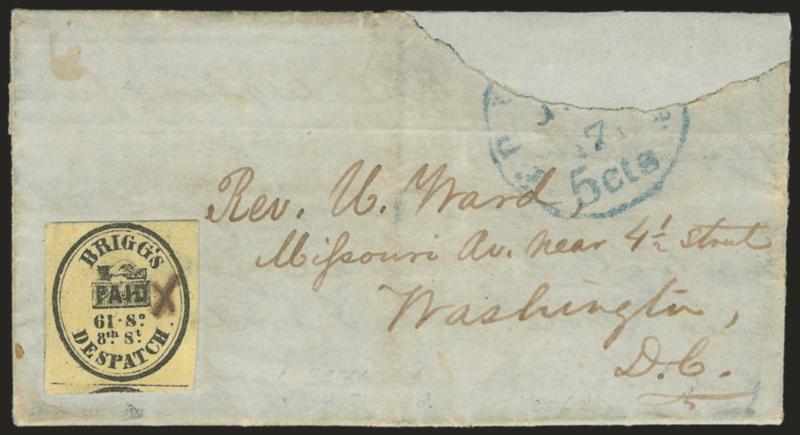 7
5cts
Rev. U. Ward,
Mißouri Av. near 4½ Street
Washington,
D.C.
BRIGG'S
PAID X
61·Sº
8th St
DESPATCH.